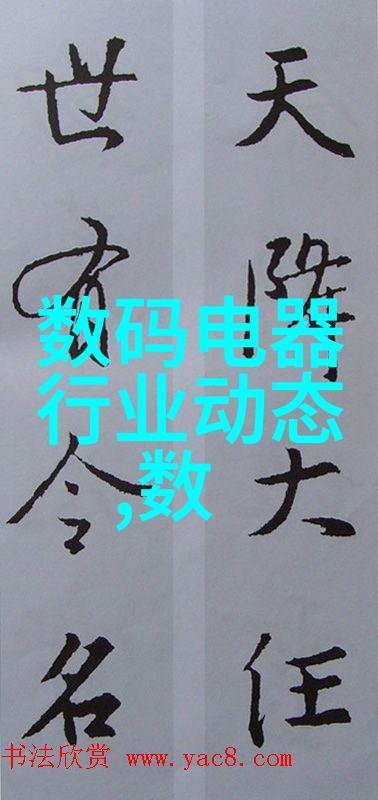 天降大任
世有令名
数码电器
行业动态
,数
书法欣赏 www.yac8.com